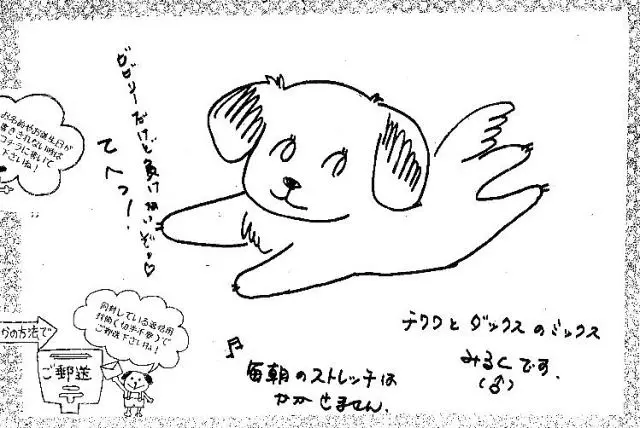 ビビリーだけど負けないぞ。♡
てへっ!
お名前やお誕生日が
書ききれない時は
コチラに書いて
下さいね!
チワワとダックスのミックス
みるくです.
(♂)
♪
毎朝のストレッチは
かかせません.
同封している返信用
封筒(切手不要)で
ご郵送下さいね!
の方法で
ご郵送